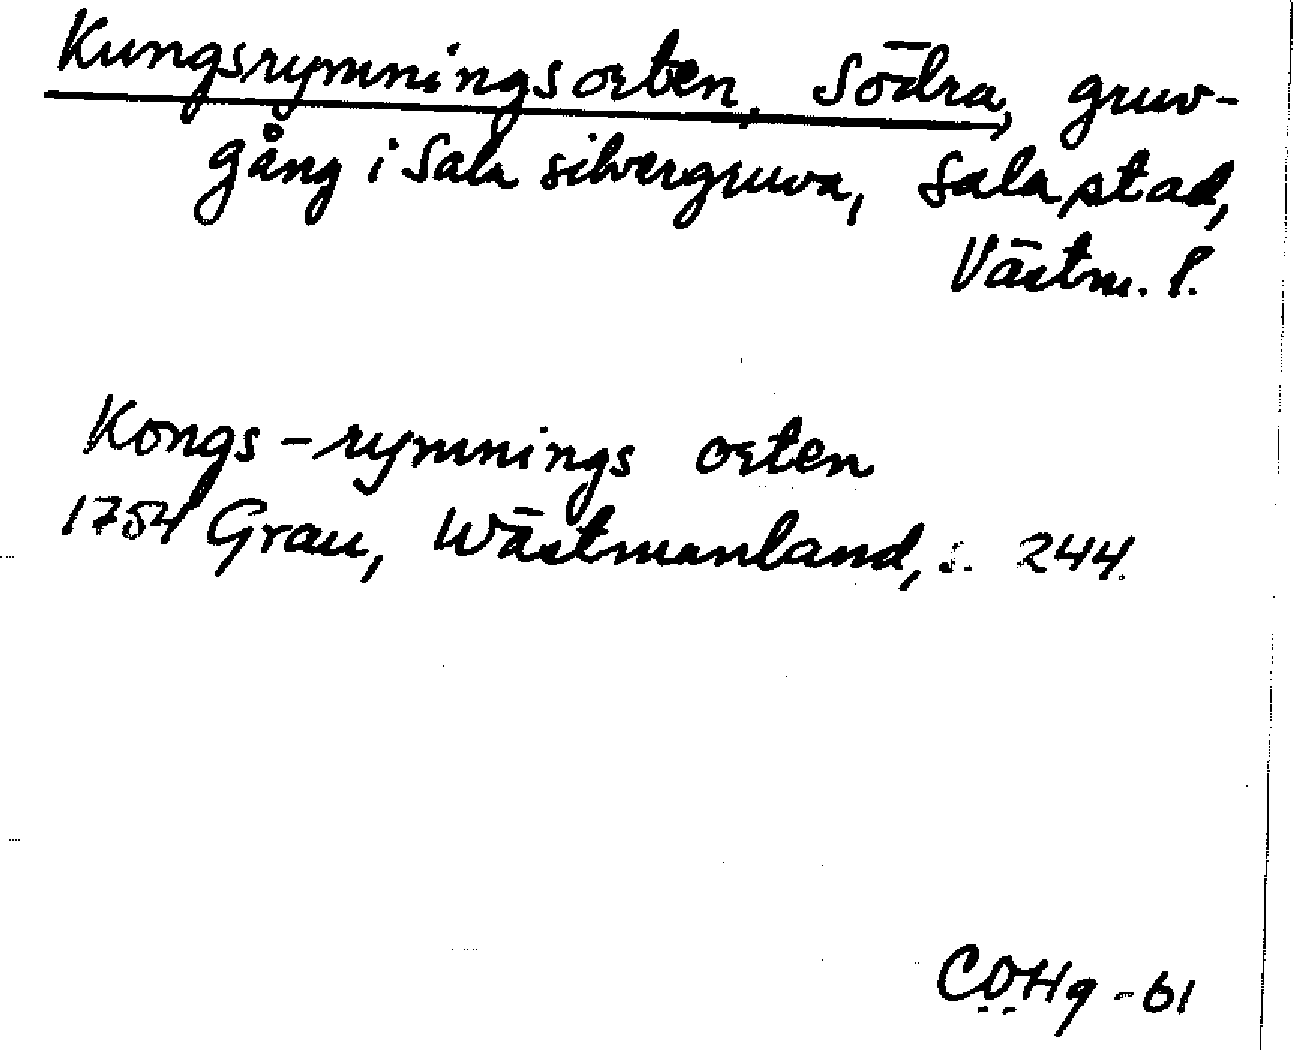 Kungsrymningsorten, Södra, gruv-
gång i Sala silvergruva, Sala stad,
Västm. l.
Kongs-rymnings orten
1754 Grau, Wästmanland, s. 244.
COHg -61